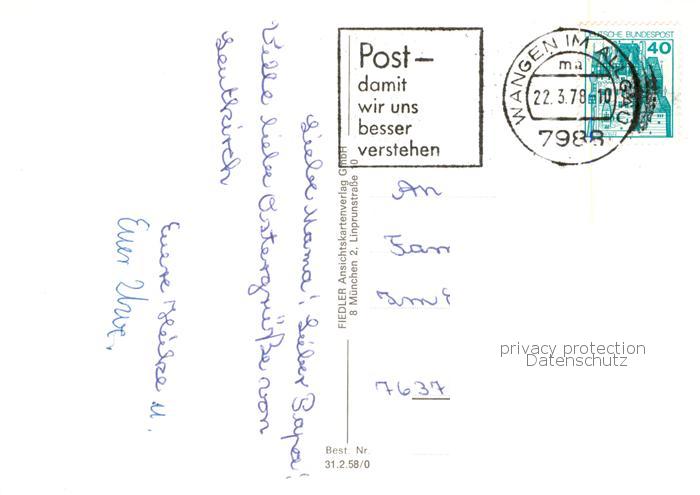 Post –
damit
wir uns
besser
verstehen
WANGEN IM ALLGÄU
ma
22.3.78-10
7988
DEUTSCHE BUNDESPOST
40
Liebe Mama! Lieber Papa!
Viele liebe Ostergrüße von
Leutkirch
Eure Heike u.
Euer Uwe.
FIEDLER Ansichtskartenverlag GmbH
8 München 2, Linprunstraße 10
An
Fam
7637
privacy protection
Datenschutz
Best. Nr.
31.2.58/0